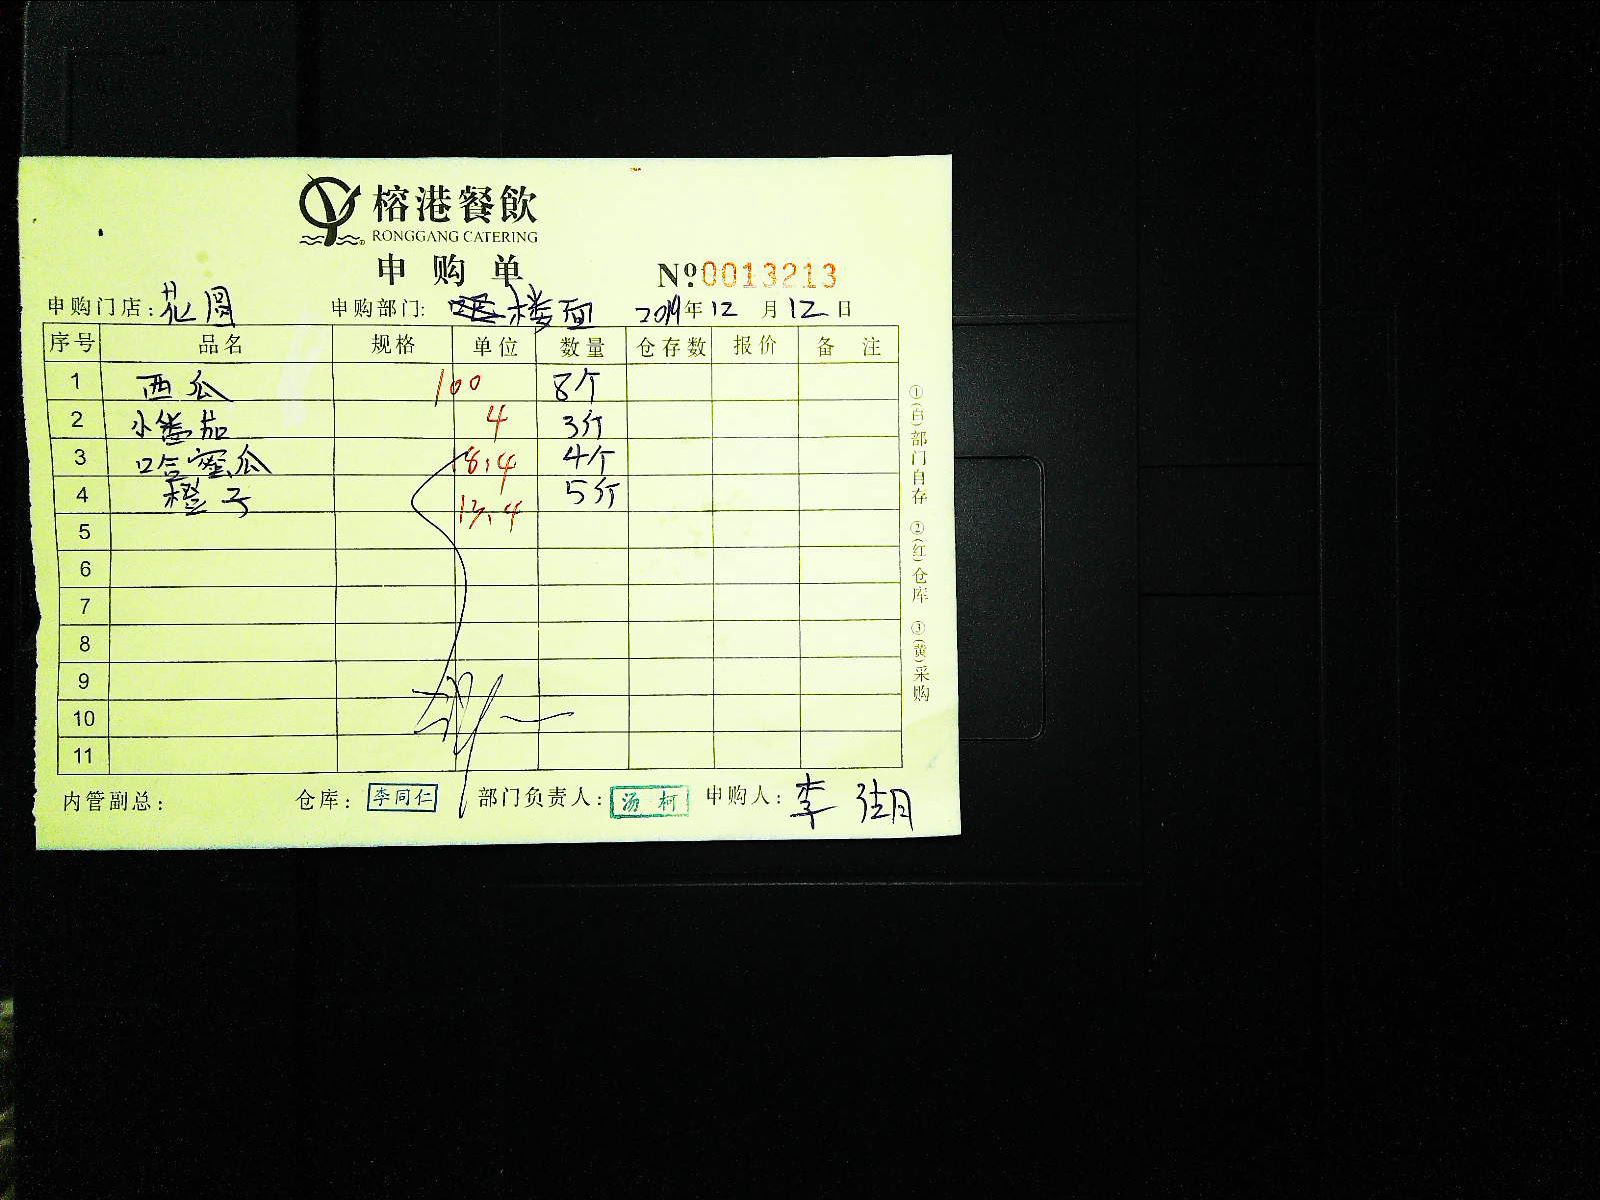 榕港餐飲
RONGGANG CATERING
申购单 №0013213
申购门店:花园 申购部门: 楼面 2019年12月12日
序号 品名 规格 单位 数量 仓存数 报价 备注
1 西瓜 100 8个
2 小番茄 4 3斤
3 哈密瓜 18.4 4个
4 橙子 13.4 5斤
5
6
7
8
9
10
11
内管副总: 仓库: 李同仁 部门负责人: 汤柯 申购人: 李
①(白)部门自存 ②(红)仓库 ③(黄)采购